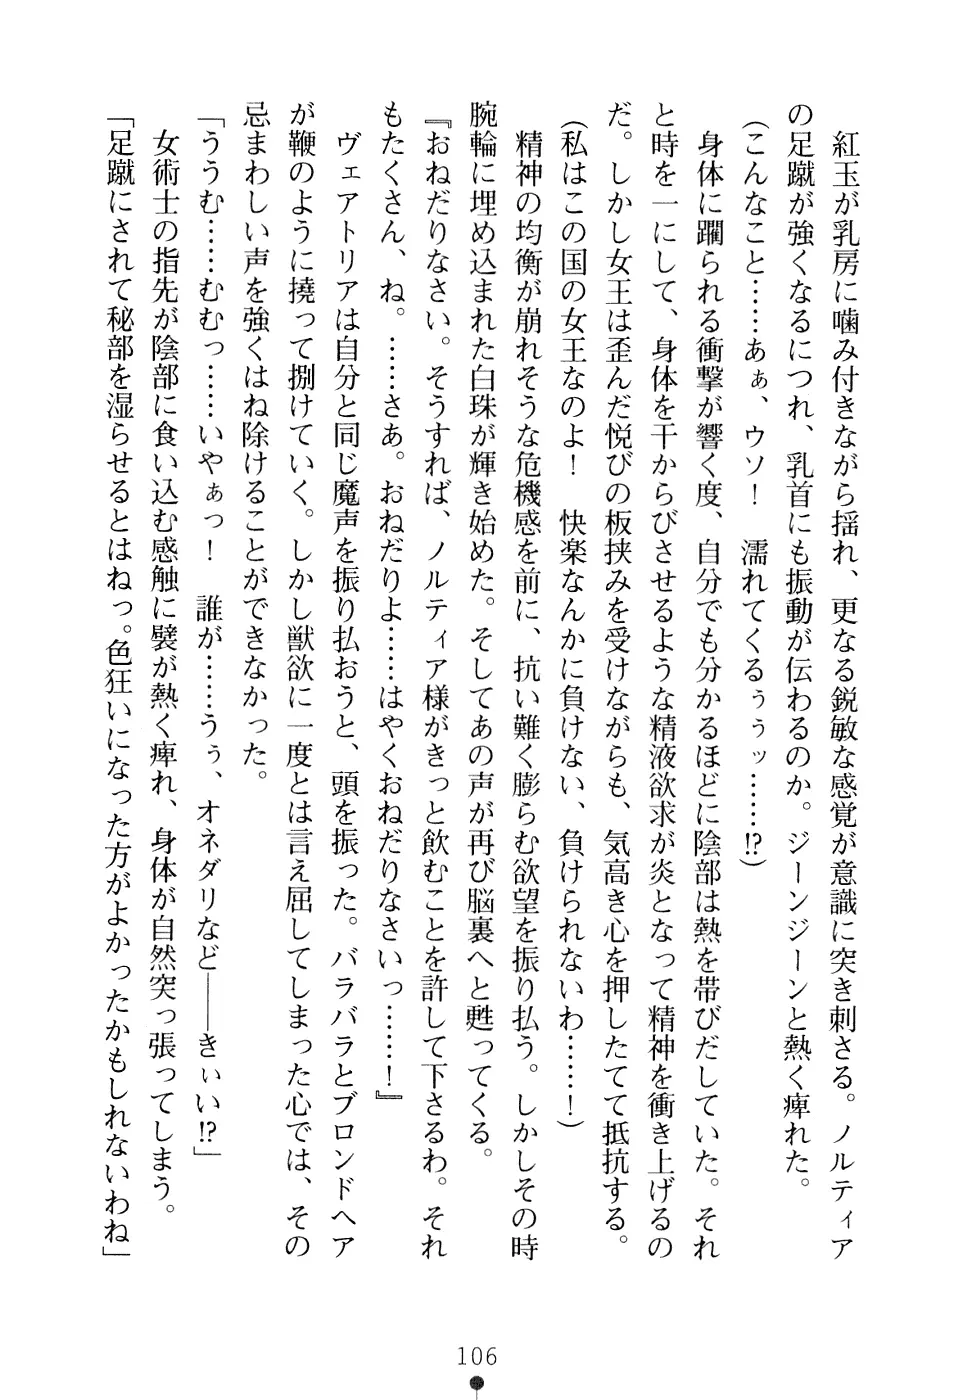 紅玉が乳房に噛み付きながら揺れ、更なる鋭敏な感覚が意識に突き刺さる。ノルティア
の足蹴が強くなるにつれ、乳首にも振動が伝わるのか。ジーンジーンと熱く痺れた。
（こんなこと……あぁ、ウソ！　濡れてくるぅぅッ……!?）
　身体に躙られる衝撃が響く度、自分でも分かるほどに陰部は熱を帯びだしていた。それ
と時を一にして、身体を干からびさせるような精液欲求が炎となって精神を衝き上げるの
だ。しかし女王は歪んだ悦びの板挟みを受けながらも、気高き心を押したてて抵抗する。
（私はこの国の女王なのよ！　快楽なんかに負けない、負けられないわ……！）
　精神の均衡が崩れそうな危機感を前に、抗い難く膨らむ欲望を振り払う。しかしその時
腕輪に埋め込まれた白珠が輝き始めた。そしてあの声が再び脳裏へと甦ってくる。
『おねだりなさい。そうすれば、ノルティア様がきっと飲むことを許して下さるわ。それ
もたくさん、ね。……さあ。おねだりよ……はやくおねだりなさいっ……！』
　ヴェアトリアは自分と同じ魔声を振り払おうと、頭を振った。バラバラとブロンドヘア
が鞭のように撓って捌けていく。しかし獣欲に一度とは言え屈してしまった心では、その
忌まわしい声を強くはね除けることができなかった。
「ううむ……むむっ……いやぁっ！　誰が……うぅ、オネダリなど――きぃい!?」
　女術士の指先が陰部に食い込む感触に襞が熱く痺れ、身体が自然突っ張ってしまう。
「足蹴にされて秘部を湿らせるとはねっ。色狂いになった方がよかったかもしれないわね」
106